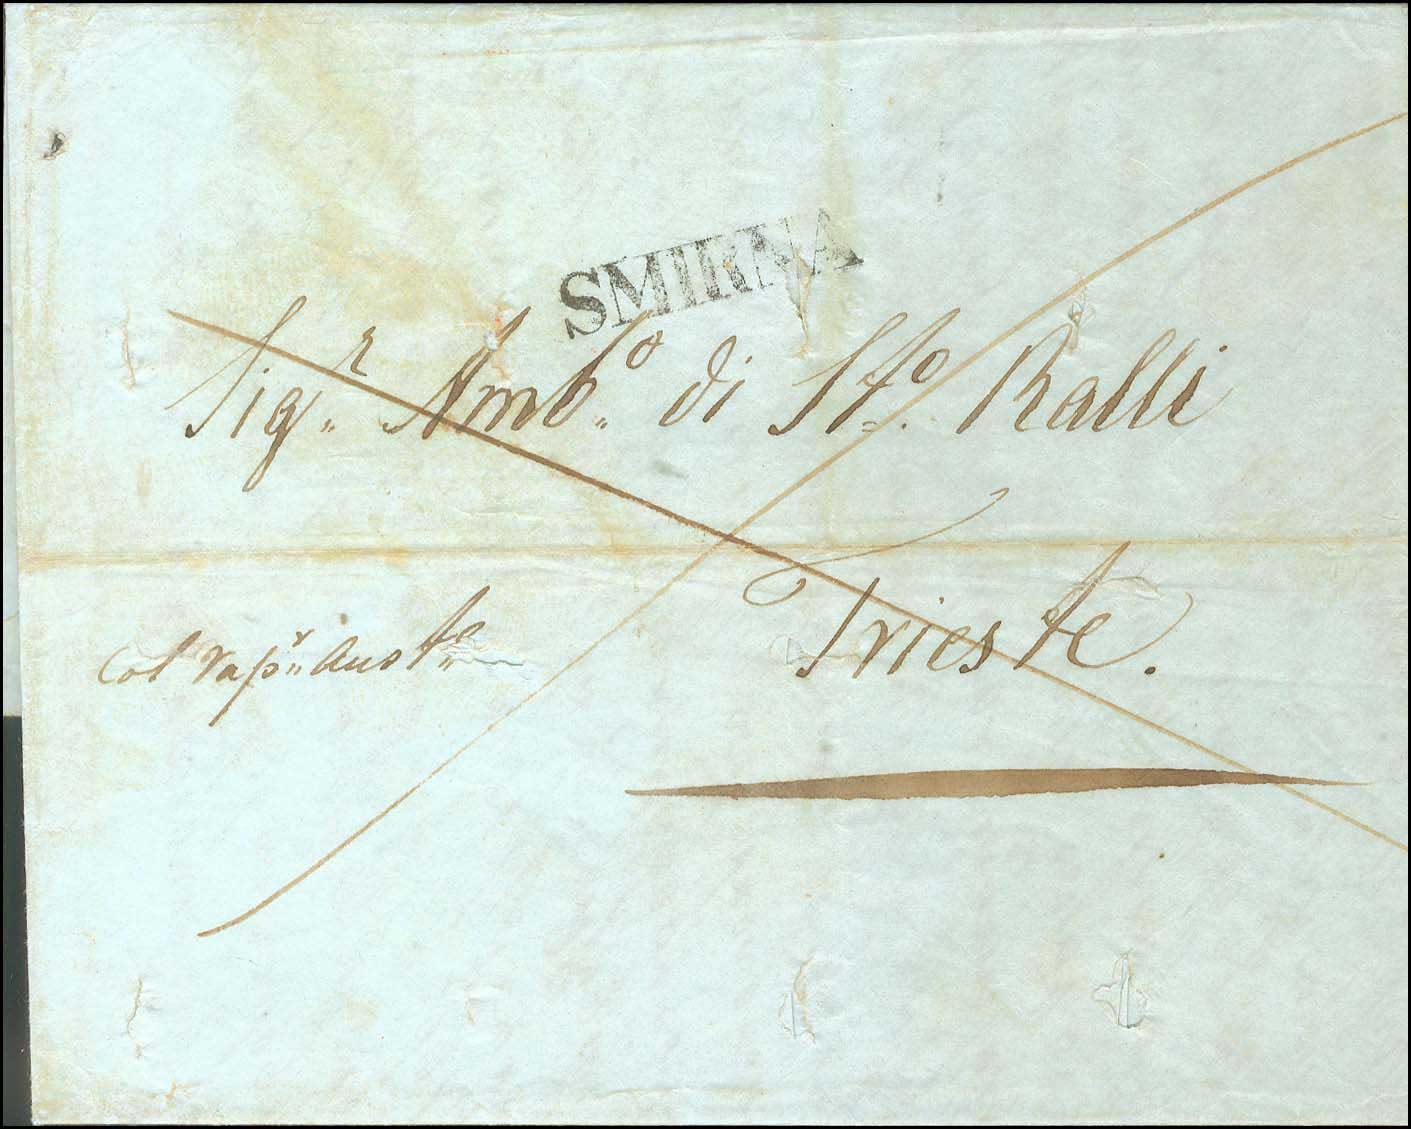 SMIRNA
Sigr. Ambo. di Sto. Ralli
Trieste.
col vapr. Austo